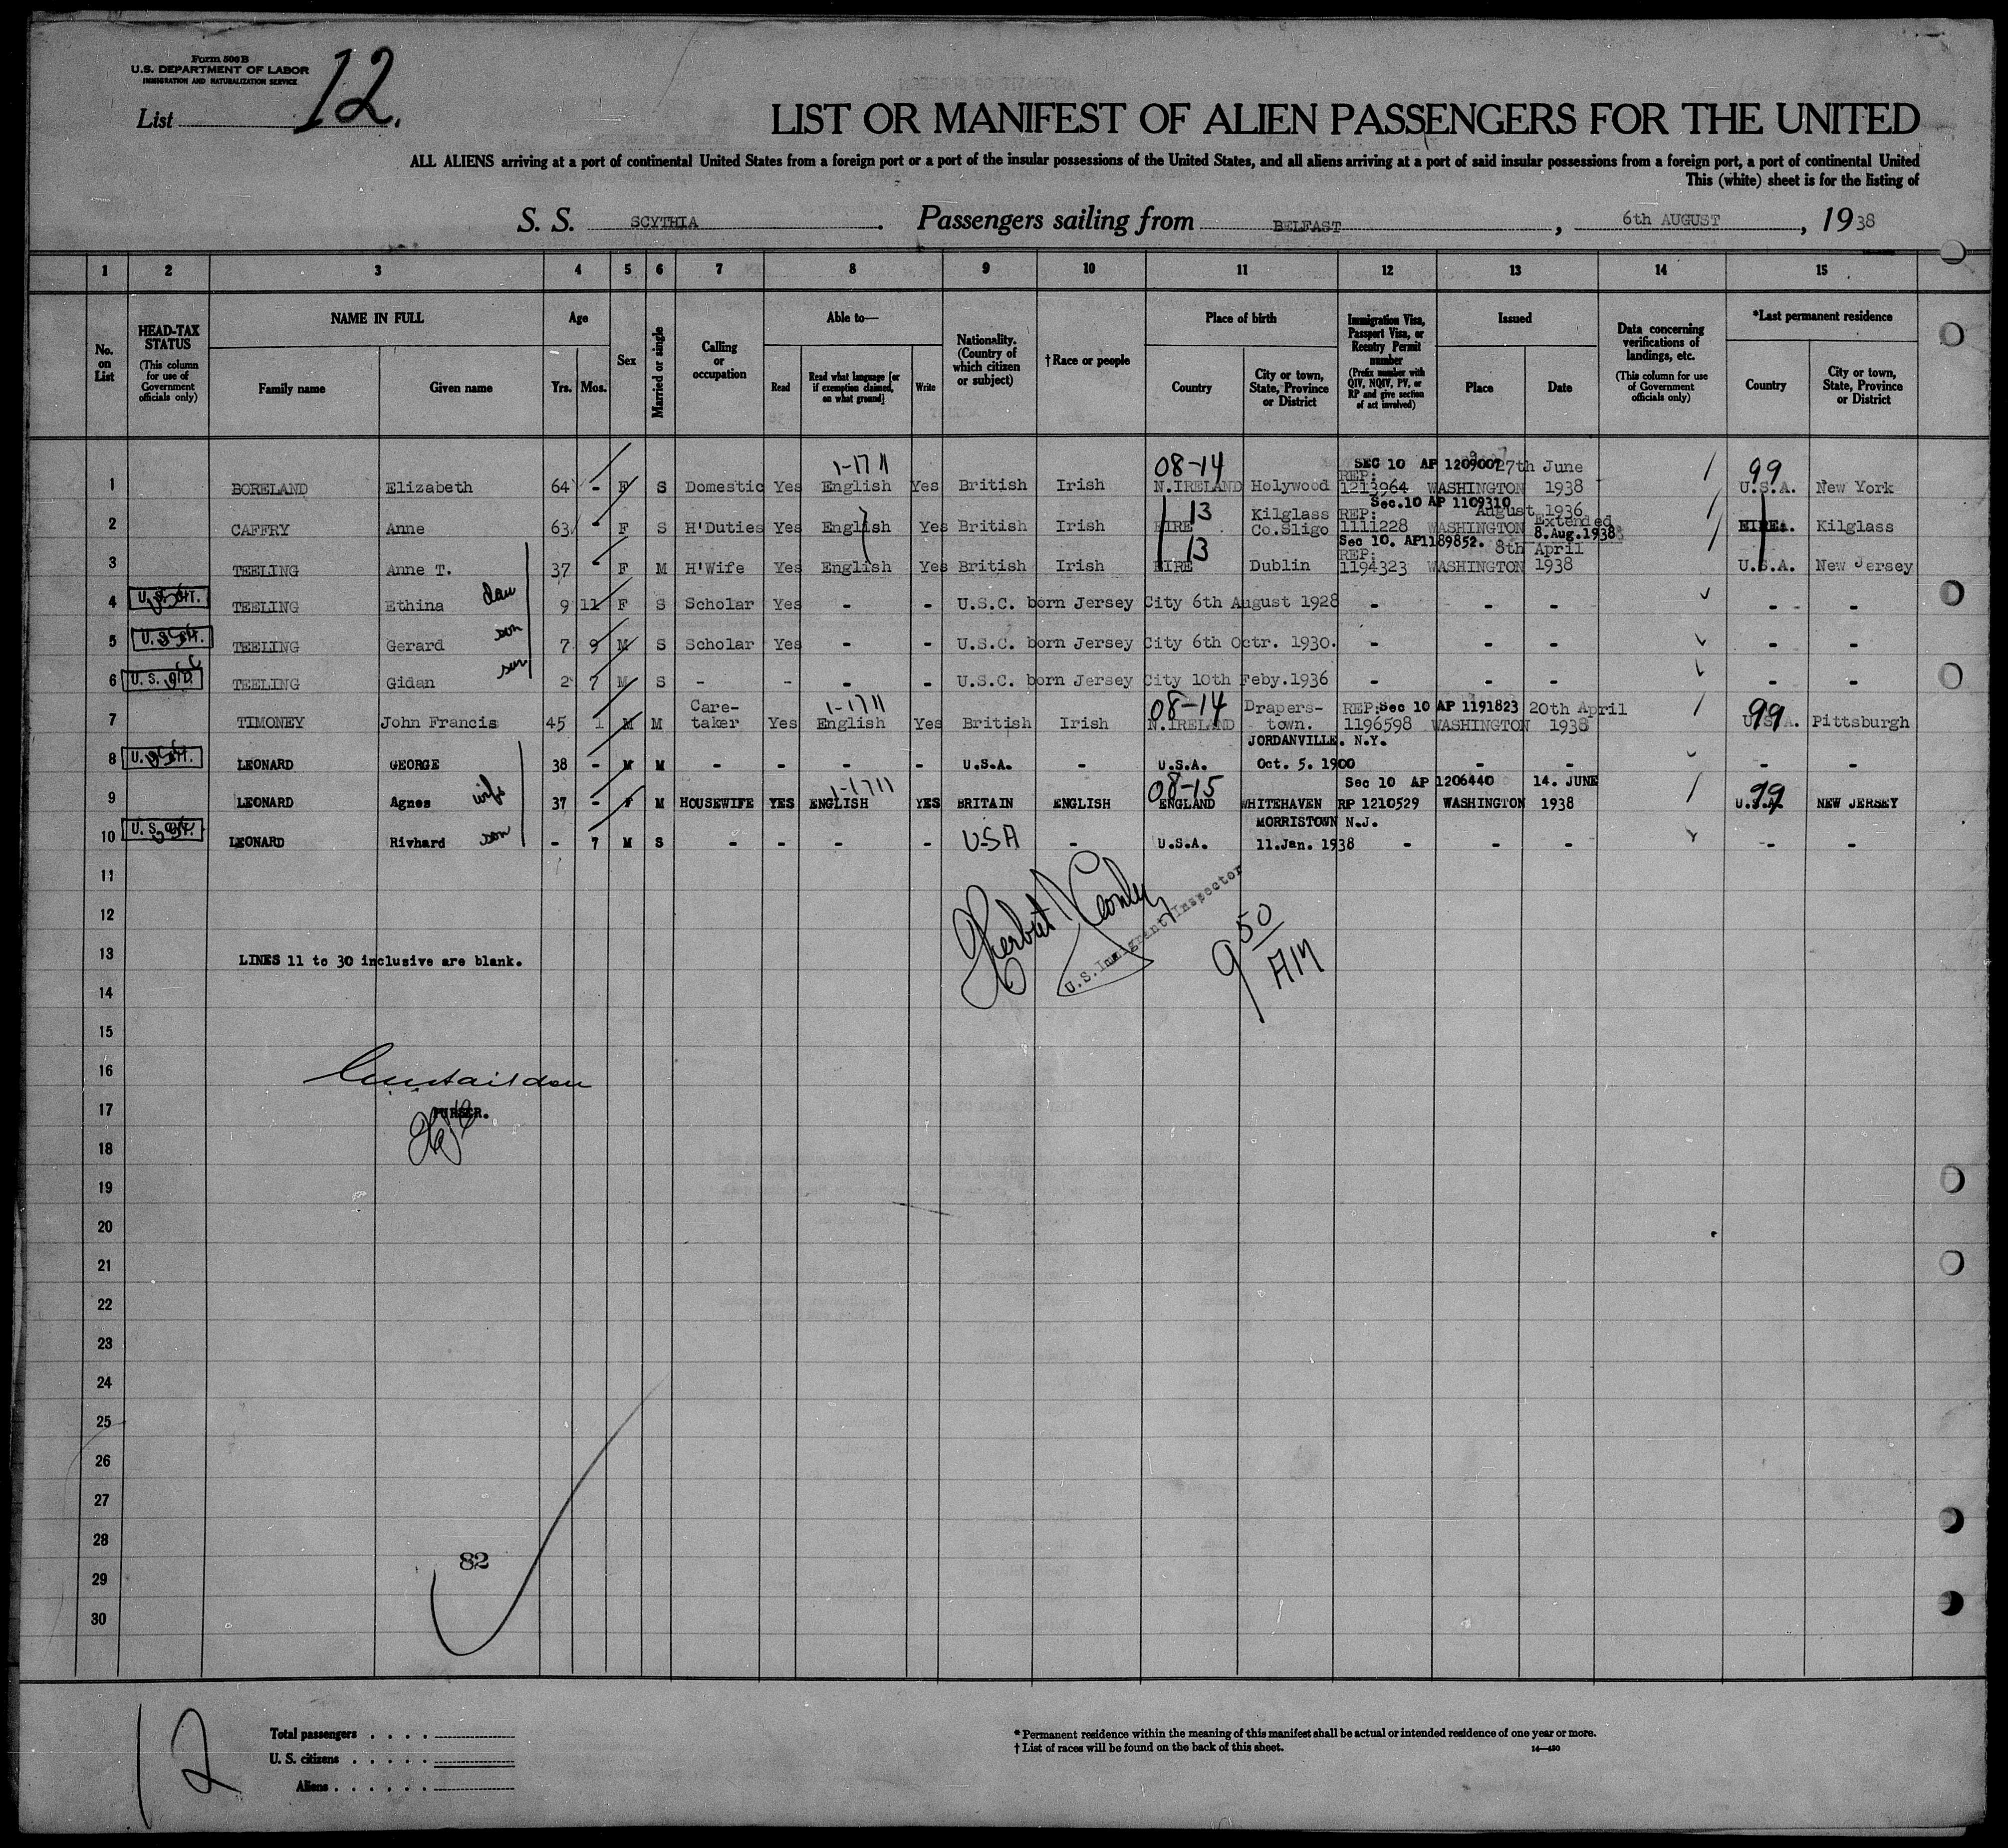 Form 500 B
U.S. DEPARTMENT OF LABOR
IMMIGRATION AND NATURALIZATION SERVICE
List 12.
LIST OR MANIFEST OF ALIEN PASSENGERS FOR THE UNITED
ALL ALIENS arriving at a port of continental United States from a foreign port or a port of the insular possessions of the United States, and all aliens arriving at a port of said insular possessions from a foreign port, a port of continental United
This (white) sheet is for the listing of
S. S. SCYTHIA. Passengers sailing from BELFAST, 6th AUGUST, 1938
1 2 3 4 5 6 7 8 9 10 11 12 13 14 15
No. on List
HEAD-TAX STATUS (This column for use of Government officials only)
NAME IN FULL
Family name Given name
Age
Yrs. Mos.
Sex
Married or single
Calling or occupation
Able to—
Read
Read what language [or if exemption claimed, on what ground]
Write
Nationality. (Country of which citizen or subject)
† Race or people
Place of birth
Country
City or town, State, Province or District
Immigration Visa, Passport Visa, or Reentry Permit number (Prefix number with QIV, NQIV, PV, or RP and give section of act involved)
Issued
Place Date
Data concerning verifications of landings, etc. (This column for use of Government officials only)
*Last permanent residence
Country
City or town, State, Province or District
1-1711 08-14 SEC 10 AP 1209007 27th June 99
1 BORELAND Elizabeth 64 - F S Domestic Yes English Yes British Irish N.IRELAND Holywood REP: 1213964 WASHINGTON 1938 U.S.A. New York
13 Kilglass Sec.10 AP 1109310 August 1936
2 CAFFRY Anne 63 - F S H'Duties Yes English Yes British Irish EIRE Co.Sligo REP: 1111228 WASHINGTON Extended 8.Aug.1938 EIRE. Kilglass
13 Sec 10. AP1189852. 8th April
3 TEELING Anne T. 37 - F M H'Wife Yes English Yes British Irish EIRE Dublin REP: 1194323 WASHINGTON 1938 U.S.A. New Jersey
4 U.S. CIT. TEELING Ethina dau 9 11 F S Scholar Yes - - U.S.C. born Jersey City 6th August 1928 - - - - -
5 U.S. CIT. TEELING Gerard son 7 9 M S Scholar Yes - - U.S.C. born Jersey City 6th Octr. 1930. - - - - -
6 U.S. CIT. TEELING Gidan son 2 7 M S - - - - U.S.C. born Jersey City 10th Feby.1936 - - - - -
Care- 1-1711 08-14 Drapers- REP: Sec 10 AP 1191823 20th April
7 TIMONEY John Francis 45 1 M M taker Yes English Yes British Irish N.IRELAND town. 1196598 WASHINGTON 1938 99 U.S.A. Pittsburgh
JORDANVILLE. N.Y.
8 U.S. CIT. LEONARD GEORGE 38 - M M - - - - U.S.A. - U.S.A. Oct. 5. 1900 - - - -
1-1711 08-15 Sec 10 AP 1206440 14. JUNE
9 LEONARD Agnes wife 37 - F M HOUSEWIFE YES ENGLISH YES BRITAIN ENGLISH ENGLAND WHITEHAVEN RP 1210529 WASHINGTON 1938 99 U.S.A. NEW JERSEY
MORRISTOWN N.J.
10 U.S. CIT. LEONARD Rivhard son - 7 M S - - - - USA - U.S.A. 11.Jan. 1938 - - - - -
11
12
13 LINES 11 to 30 inclusive are blank.
U.S. Immigrant Inspector
9 50 AM
14
15
16
17 PURSER.
18
19
20
21
22
23
24
25
26
27
28
82
29
30
12
Total passengers . . . .
U. S. citizens . . . . .
Aliens . . . . . .
* Permanent residence within the meaning of this manifest shall be actual or intended residence of one year or more.
† List of races will be found on the back of this sheet.
14—430